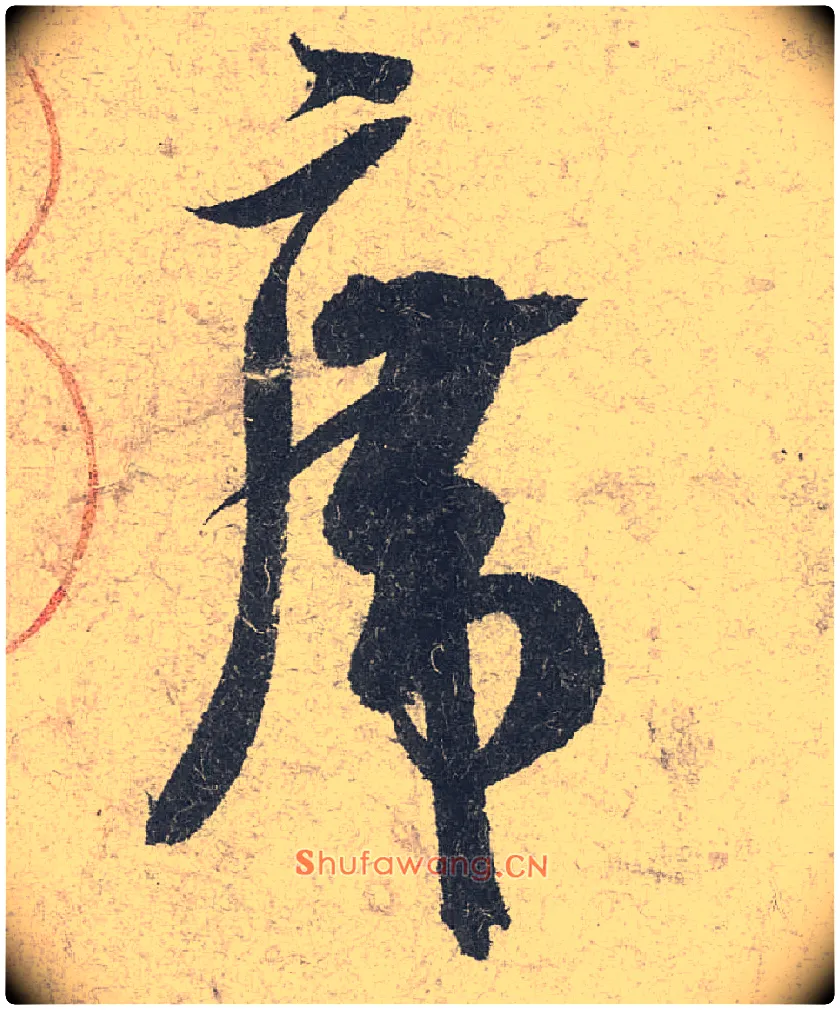 席
Shufawang.CN